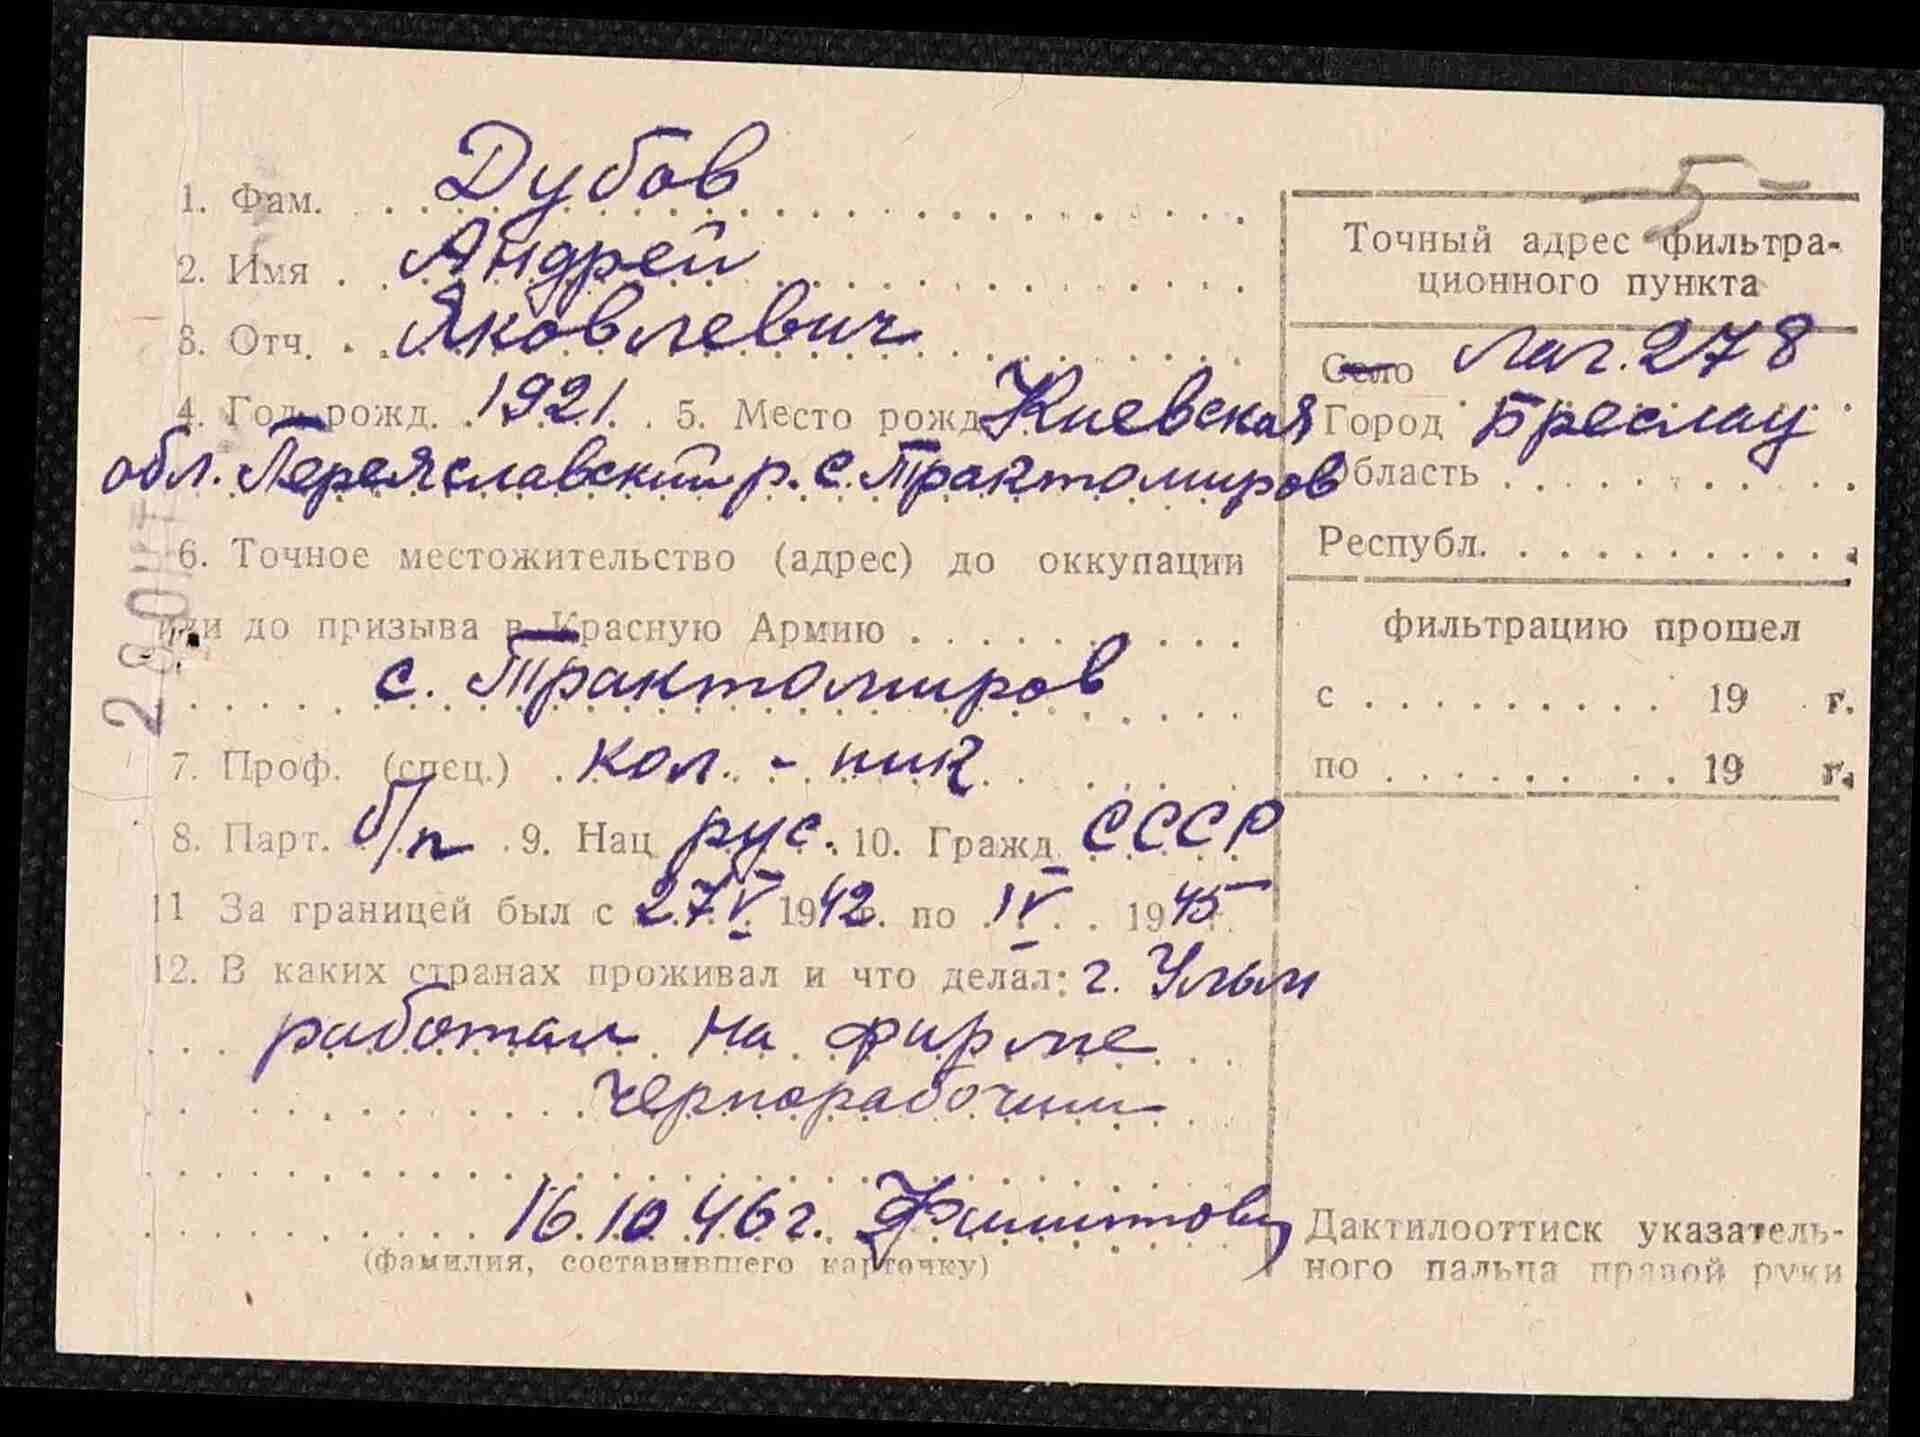 1. Фам. Дубов
2. Имя Андрей
3. Отч. Яковлевич
4. Год рожд. 1921. 5. Место рожд Киевская
обл. Переяславский р. с. Трактомиров
6. Точное местожительство (адрес) до оккупации
или до призыва в Красную Армию
с. Трактомиров
7. Проф. (спец.) кол. - ник
8. Парт. б/п 9. Нац рус. 10. Гражд СССР
11 За границей был с 27 V 1942. по IV 1945
12. В каких странах проживал и что делал: г. Ульм
работал на фирме
чернорабочим
16.10 46 г.
(фамилия, составившего карточку)
5
Точный адрес фильтра-
ционного пункта
Село Лаг. 278
Город Бреслау
Область
Республ.
фильтрацию прошел
с 19 г.
по 19 г.
Дактилооттиск указатель-
ного пальца правой руки